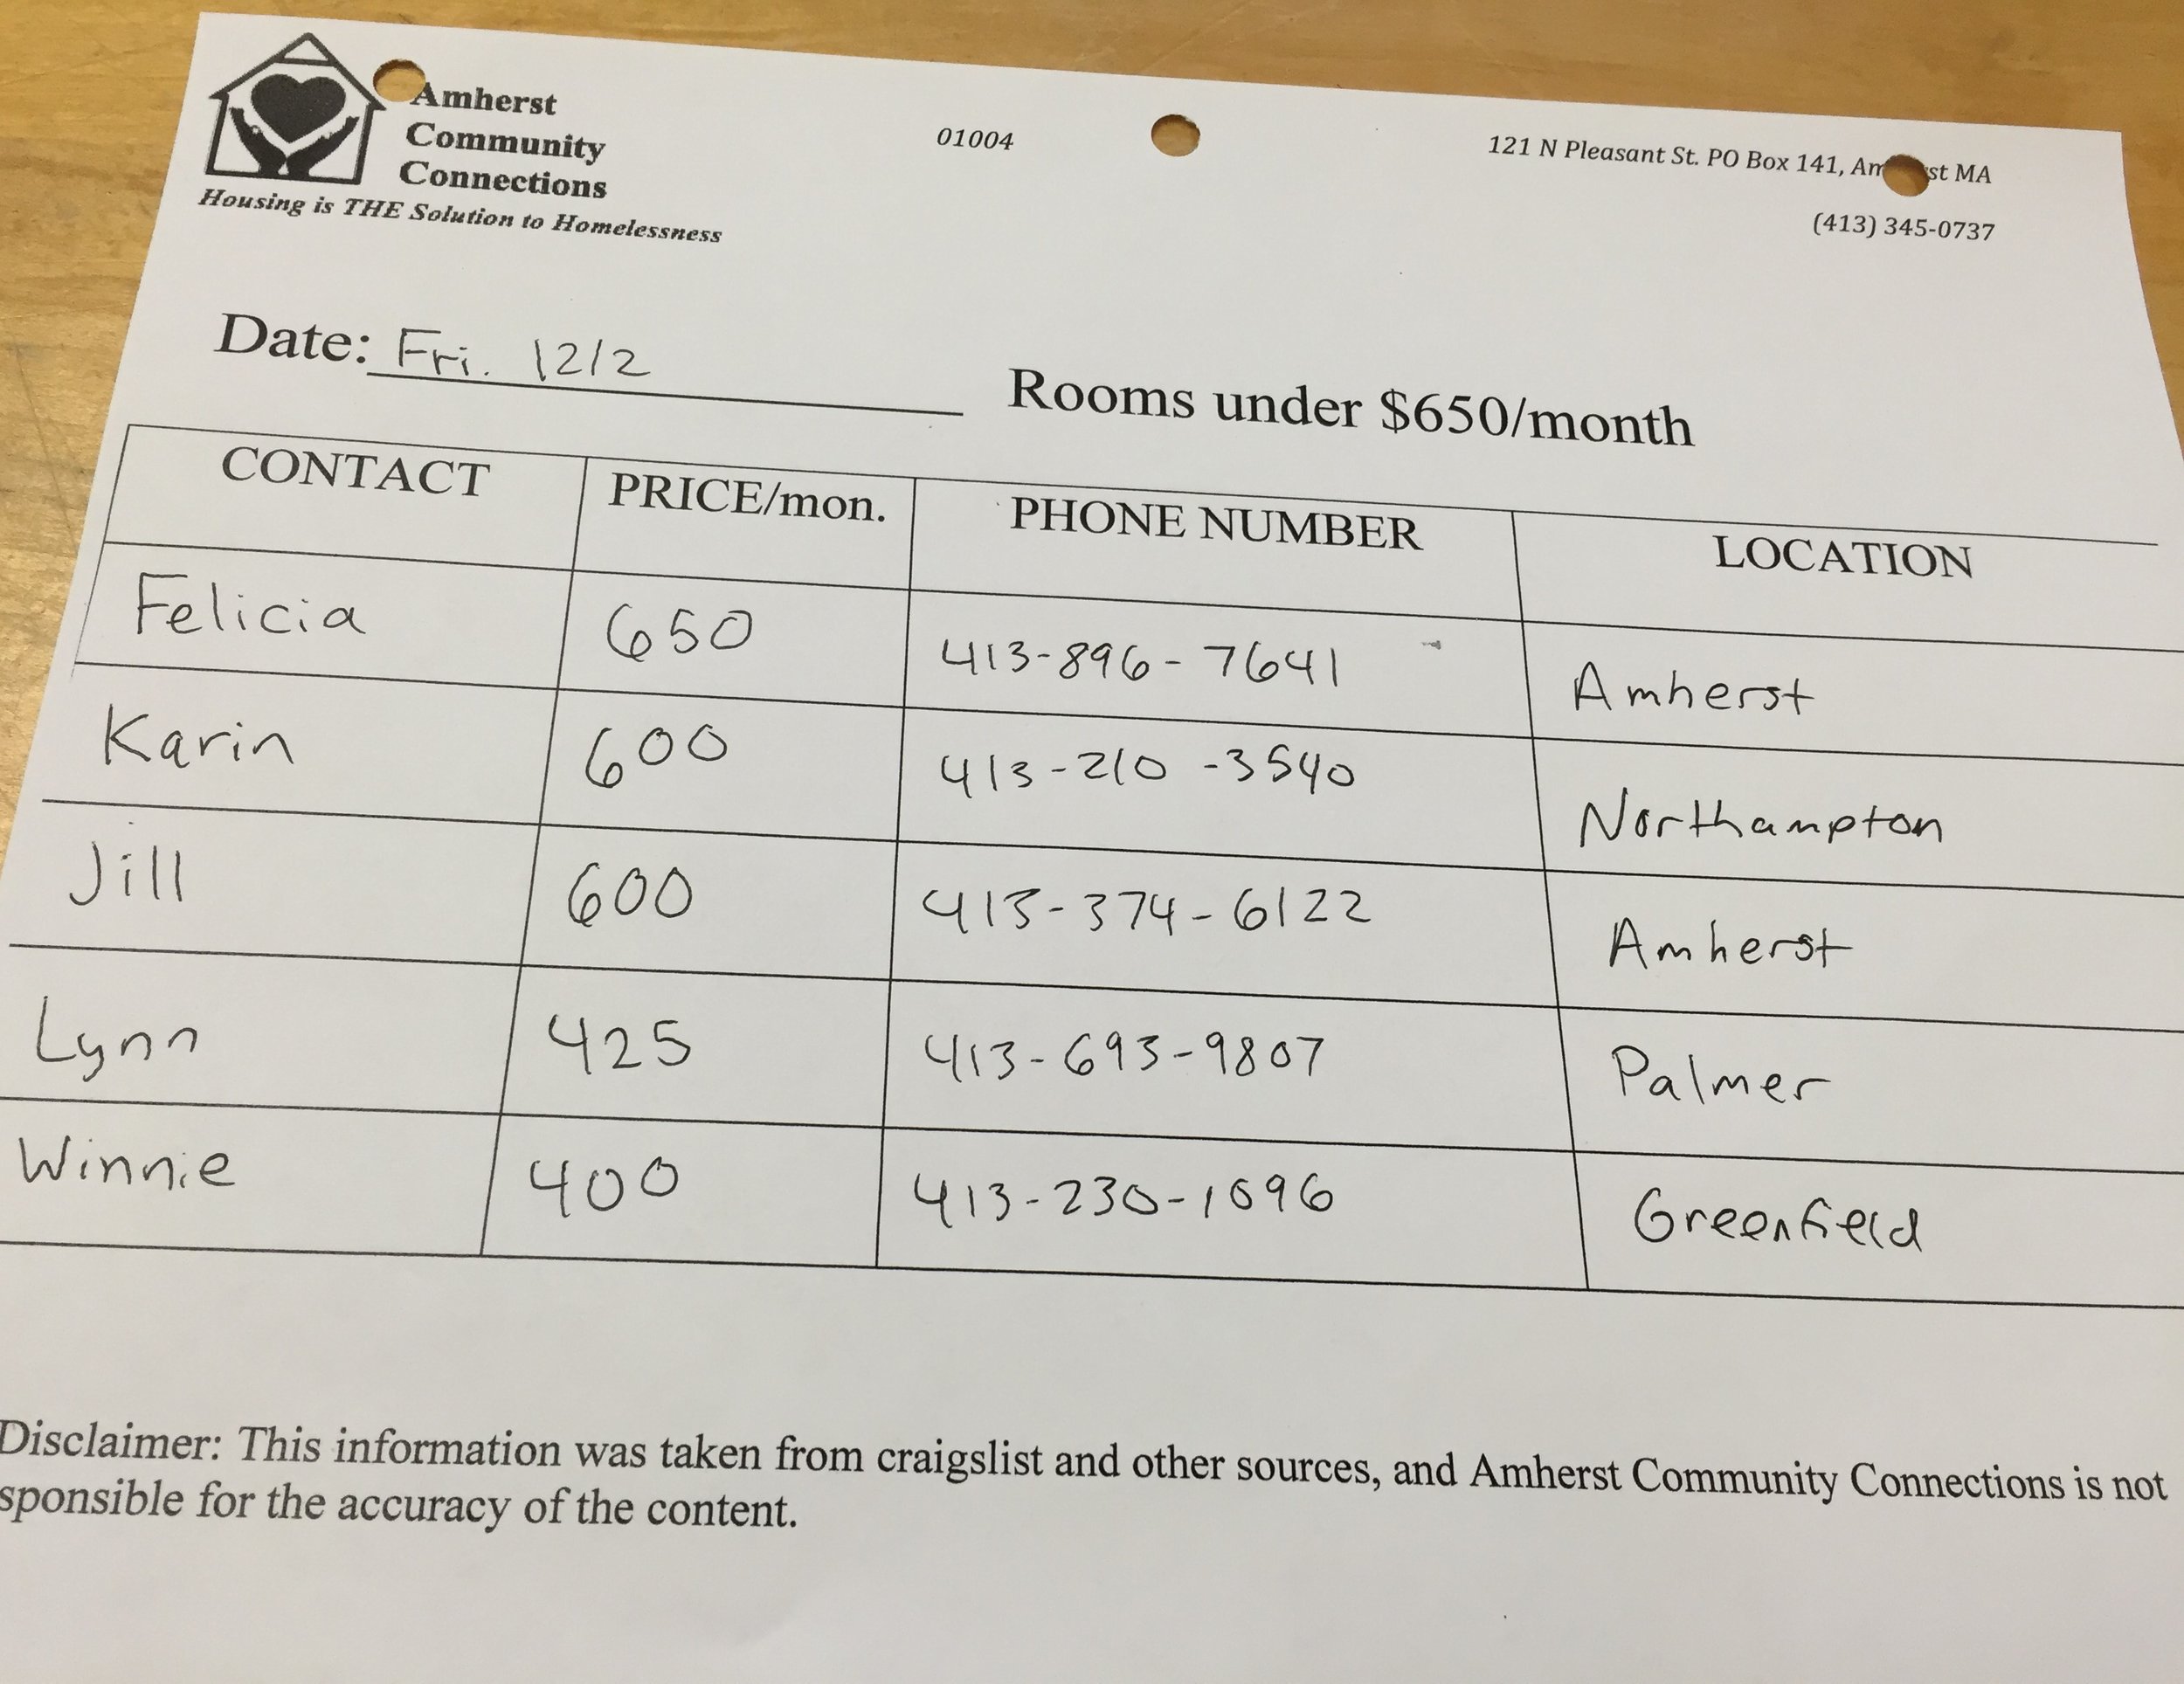 Amherst
Community
Connections
Housing is THE Solution to Homelessness
01004
121 N Pleasant St. PO Box 141, Am st MA
(413) 345-0737
Date: Fri. 12/2
Rooms under $650/month
CONTACT PRICE/mon. PHONE NUMBER LOCATION
Felicia 650 413-896-7641 Amherst
Karin 600 413-210-3540 Northampton
Jill 600 413-374-6122 Amherst
Lynn 425 413-693-9807 Palmer
Winnie 400 413-230-1096 Greenfield
Disclaimer: This information was taken from craigslist and other sources, and Amherst Community Connections is not
sponsible for the accuracy of the content.